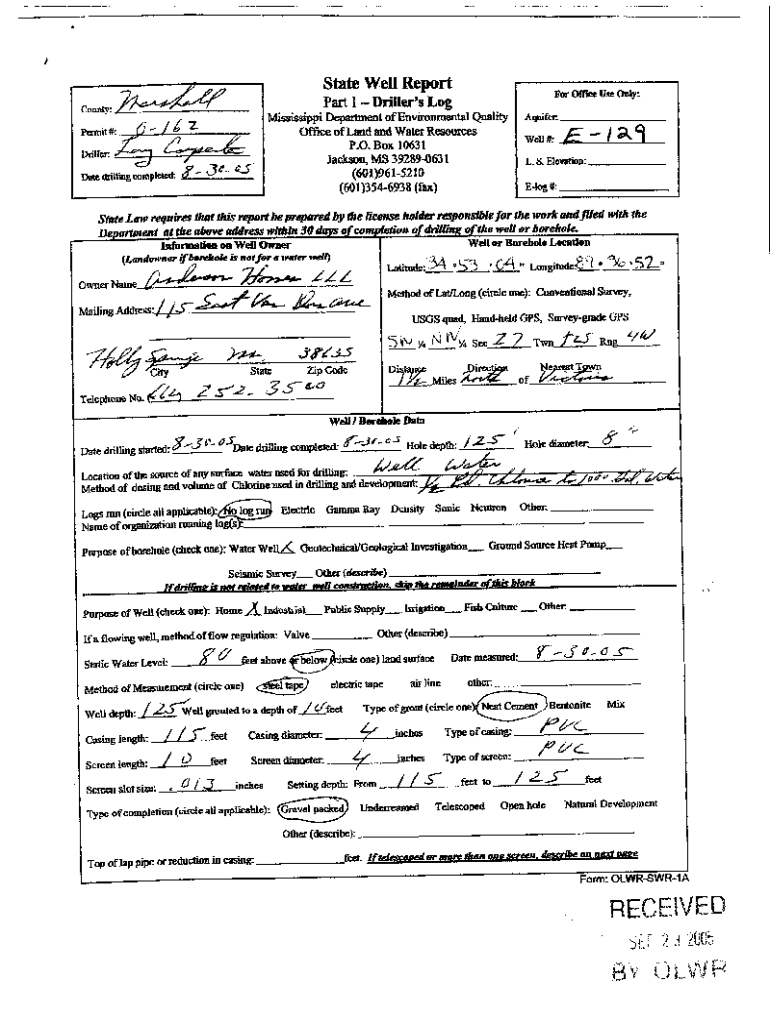 State Well Report
Part 1 – Driller's Log
Mississippi Department of Environmental Quality
Office of Land and Water Resources
P.O. Box 10631
Jackson, MS 39289-0631
(601)961-5210
(601)354-6938 (fax)
County: Marshall
Permit #: 0-162
Driller:
Date drilling completed: 8-30-05
For Office Use Only:
Aquifer:
Well #: E-129
L. S. Elevation:
E-log #:
State Law requires that this report be prepared by the license holder responsible for the work and filed with the
Department at the above address within 30 days of completion of drilling of the well or borehole.
Information on Well Owner
(Landowner if borehole is not for a water well)
Owner Name Homes LLC
Mailing Address: 115 East Van
Holly Springs Ms. 38635
City State Zip Code
Telephone No. 662 252-3500
Well or Borehole Location
Latitude: 34 ° 53 ' 04 " Longitude: 89 ° 36 ' 52 "
Method of Lat/Long (circle one): Conventional Survey,
USGS quad, Hand-held GPS, Survey-grade GPS
SW ¼ NW ¼ Sec 27 Twn T2S Rng 4W
Distance Direction Nearest Town
1½ Miles North of Victoria
Well / Borehole Data
Date drilling started: 8-30-05 Date drilling completed: 8-30-05 Hole depth: 125 ' Hole diameter: 8 "
Location of the source of any surface water used for drilling: Well Water
Method of dosing and volume of Chlorine used in drilling and development: ½ Chlorine to 1000 Gal. Water
Logs run (circle all applicable): No log run Electric Gamma Ray Density Sonic Neutron Other:
Name of organization running log(s):
Purpose of borehole (check one): Water Well X Geotechnical/Geological Investigation Ground Source Heat Pump
Seismic Survey Other (describe)
If drilling is not related to water well construction, skip the remainder of this block
Purpose of Well (check one): Home X Industrial Public Supply Irrigation Fish Culture Other:
If a flowing well, method of flow regulation: Valve Other (describe)
Static Water Level: 80 feet above or below (circle one) land surface Date measured: 8-30-05
Method of Measurement (circle one) steel tape electric tape air line other:
Well depth: 125 Well grouted to a depth of 10 feet Type of grout (circle one): Neat Cement Bentonite Mix
Casing length: 115 feet Casing diameter: 4 inches Type of casing: PVC
Screen length: 10 feet Screen diameter: 4 inches Type of screen: PVC
Screen slot size: .013 inches Setting depth: From 115 feet to 125 feet
Type of completion (circle all applicable): Gravel packed Underreamed Telescoped Open hole Natural Development
Other (describe):
Top of lap pipe or reduction in casing: feet. If telescoped or more than one screen, describe on next page
Form: OLWR-SWR-1A
RECEIVED
2005
BY OLWR